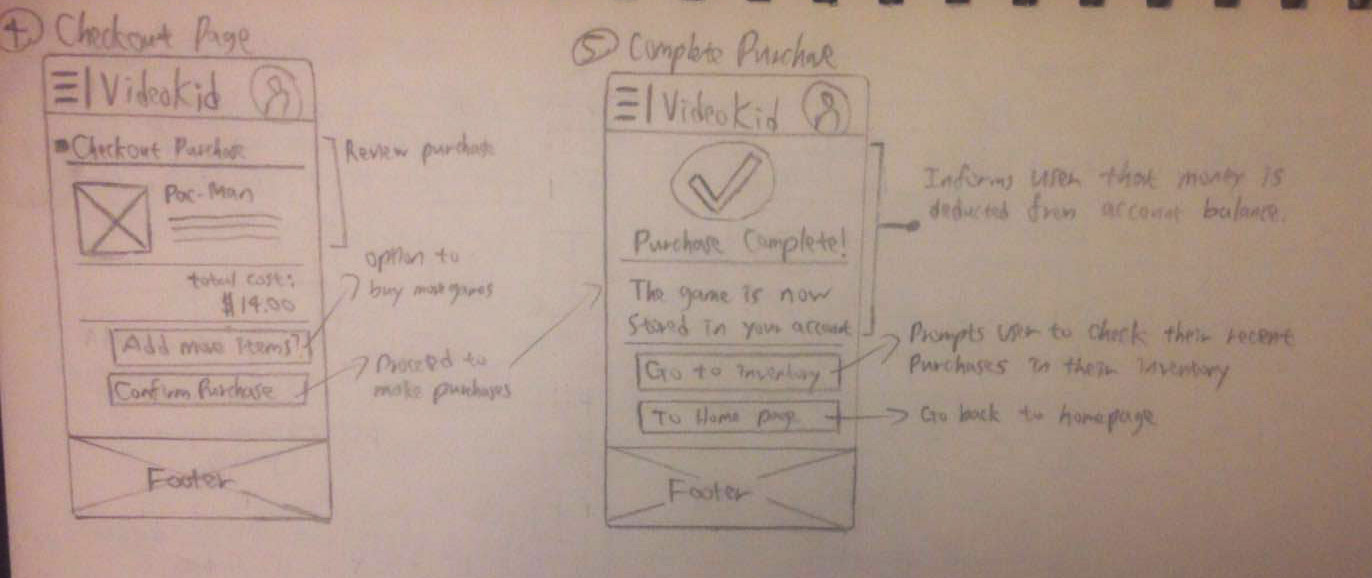 4 Checkout Page
VideoKid
Checkout Purchase
Pac-Man
total cost:
$14.00
Add more items?
Confirm Purchase
Footer
Review purchase
option to
buy more games
Proceed to
make purchases
5 Complete Purchase
VideoKid
Purchase Complete!
The game is now
Stored in your account
Go to inventory
To Home page
Footer
Informs user that money is
deducted from account balance.
Prompts user to check their recent
Purchases in their inventory
Go back to homepage